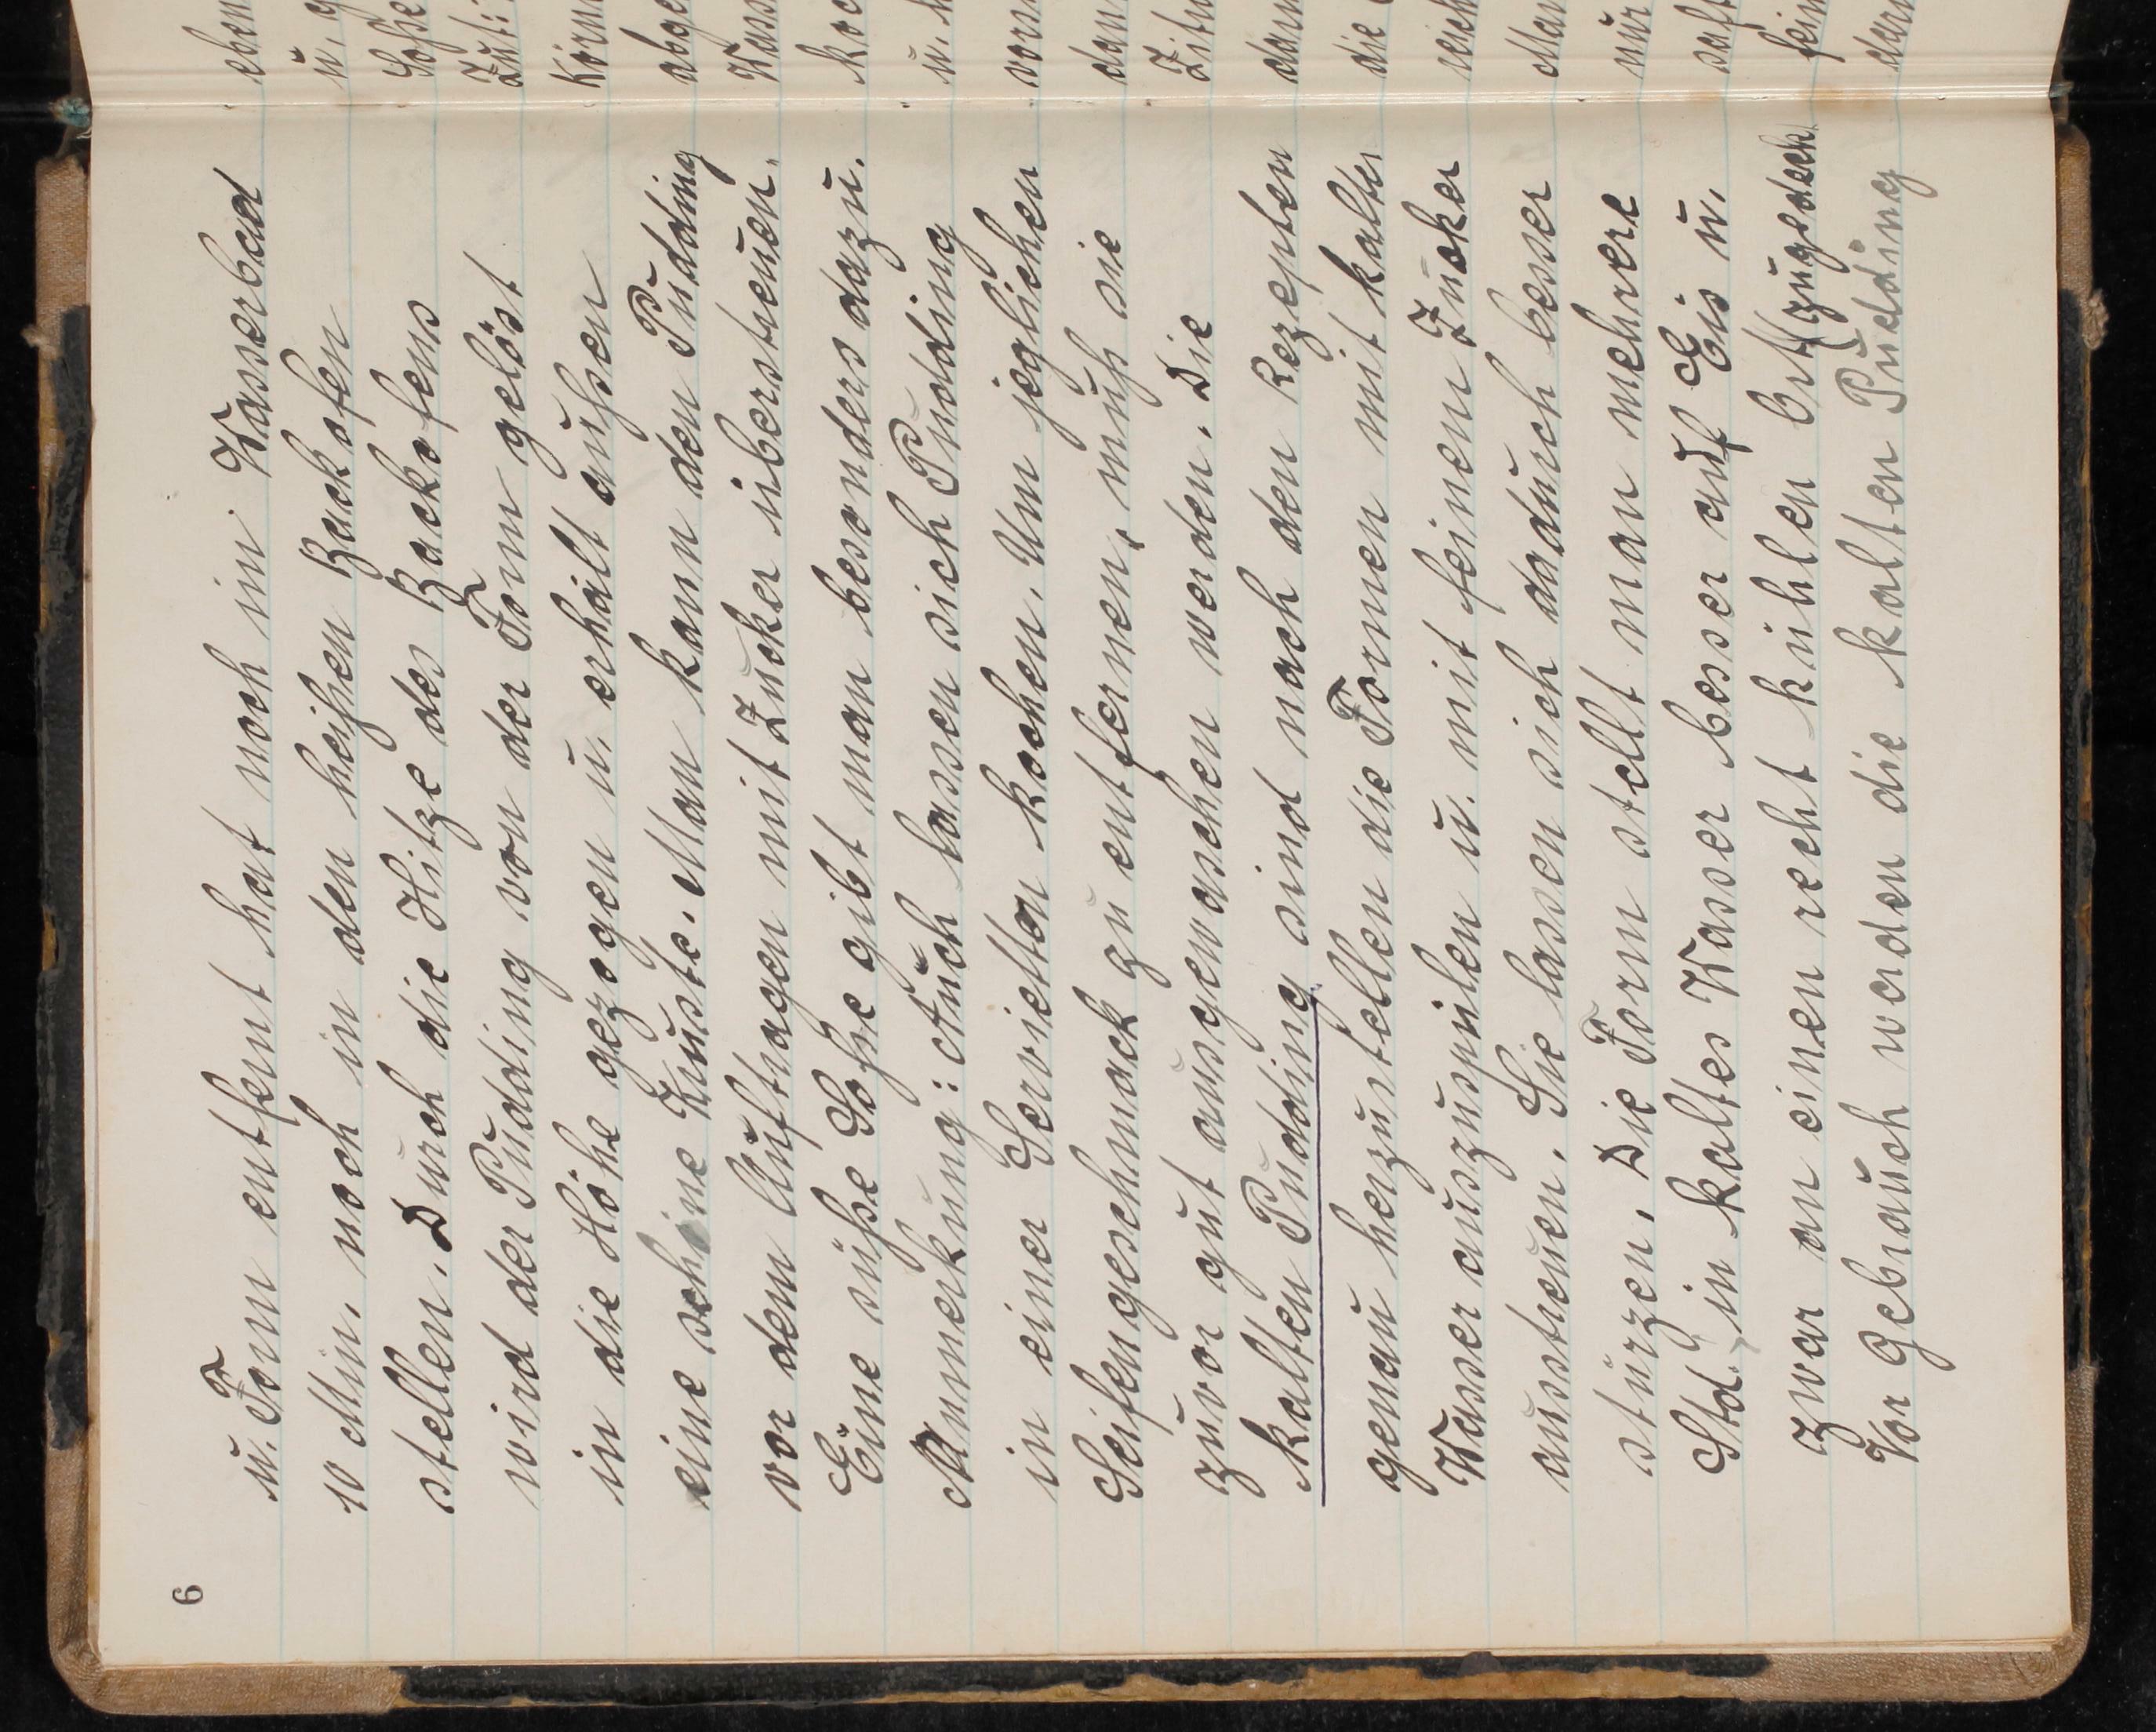 6
u. Form entfernt hat noch im Wasserbad
10 Min. noch in den heißen Backofen
stellen. Durch die Hitze des Backofens
wird der Pudding von der Form gelöst
in die Höhe gezogen u. erhält außen
eine schöne Kruste. Man kann den Pudding
vor dem Auftragen mit Zucker überstreuen.
Eine süße Soße gibt man besonders dazu.
Anmerkung: Auch lassen sich Pudding
in einer Servietta kochen. Um jeglichen
Seifengeschmack zu entfernen, muß sie
zuvor gut ausgewaschen werden. Die
kalten Pudding sind nach den Rezepten
genau herzustellen die Formen mit kalten
Wasser auszuspülen u. mit feinen Zucker
ausstreuen. Sie lassen sich dadurch besser
stürzen. Die Form stellt man mehrere
Std. in kaltes Wasser besser auf Eis u.
zwar an einen recht kühlen Ort (zugedeckt)
Vor Gebrauch werden die kalten Pudding
eben
u. g
Soße
Zuti
Körn
abge
Wass
Koc
u. M
vors
dan
Zitr
dann
die
reich
Man
nur
saft
fein
dar